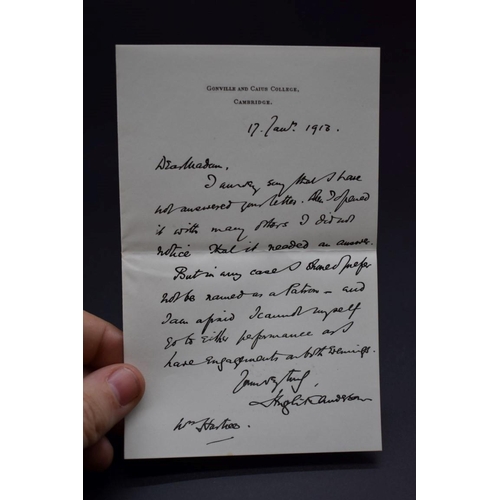 GONVILLE AND CAIUS COLLEGE,
CAMBRIDGE.
17. Janʸ. 1913.
Dear Madam,
I am very sorry that I have
not answered your letter. When I opened
it with many others I did not
notice that it needed an answer.
But in any case I should prefer
not be named as a Patron – and
I am afraid I cannot myself
go to either performance as I
have engagements on both evenings.
Yours very truly,
Hugh K Anderson
Mrs